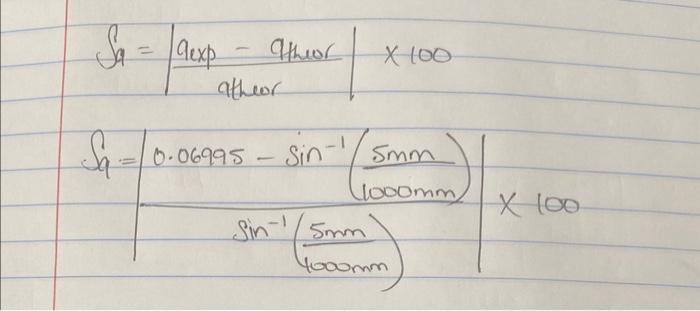 Sq = |qexp - qtheor / qtheor| × 100
Sq = |0.06995 - sin⁻¹(5mm/1000mm) / sin⁻¹(5mm/1000mm)| × 100